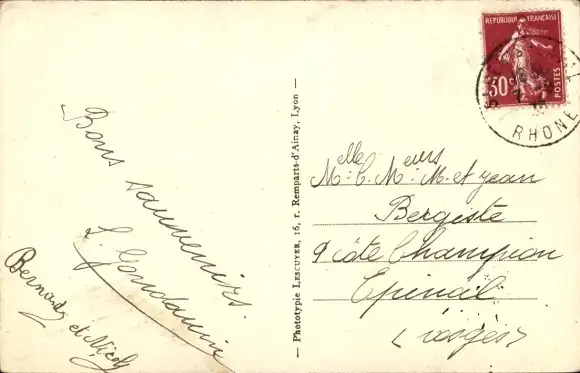 Bons souvenirs
L. Goudavin
Bernard et Nicole
— Phototypie LESCUYER, 16, r. Remparts-d'Ainay, Lyon —
REPUBLIQUE FRANÇAISE
30c
POSTES
RHONE
Melle C. Meurs M. et Jean
Bergiste
9 côte Champion
Epinal
(Vosges)